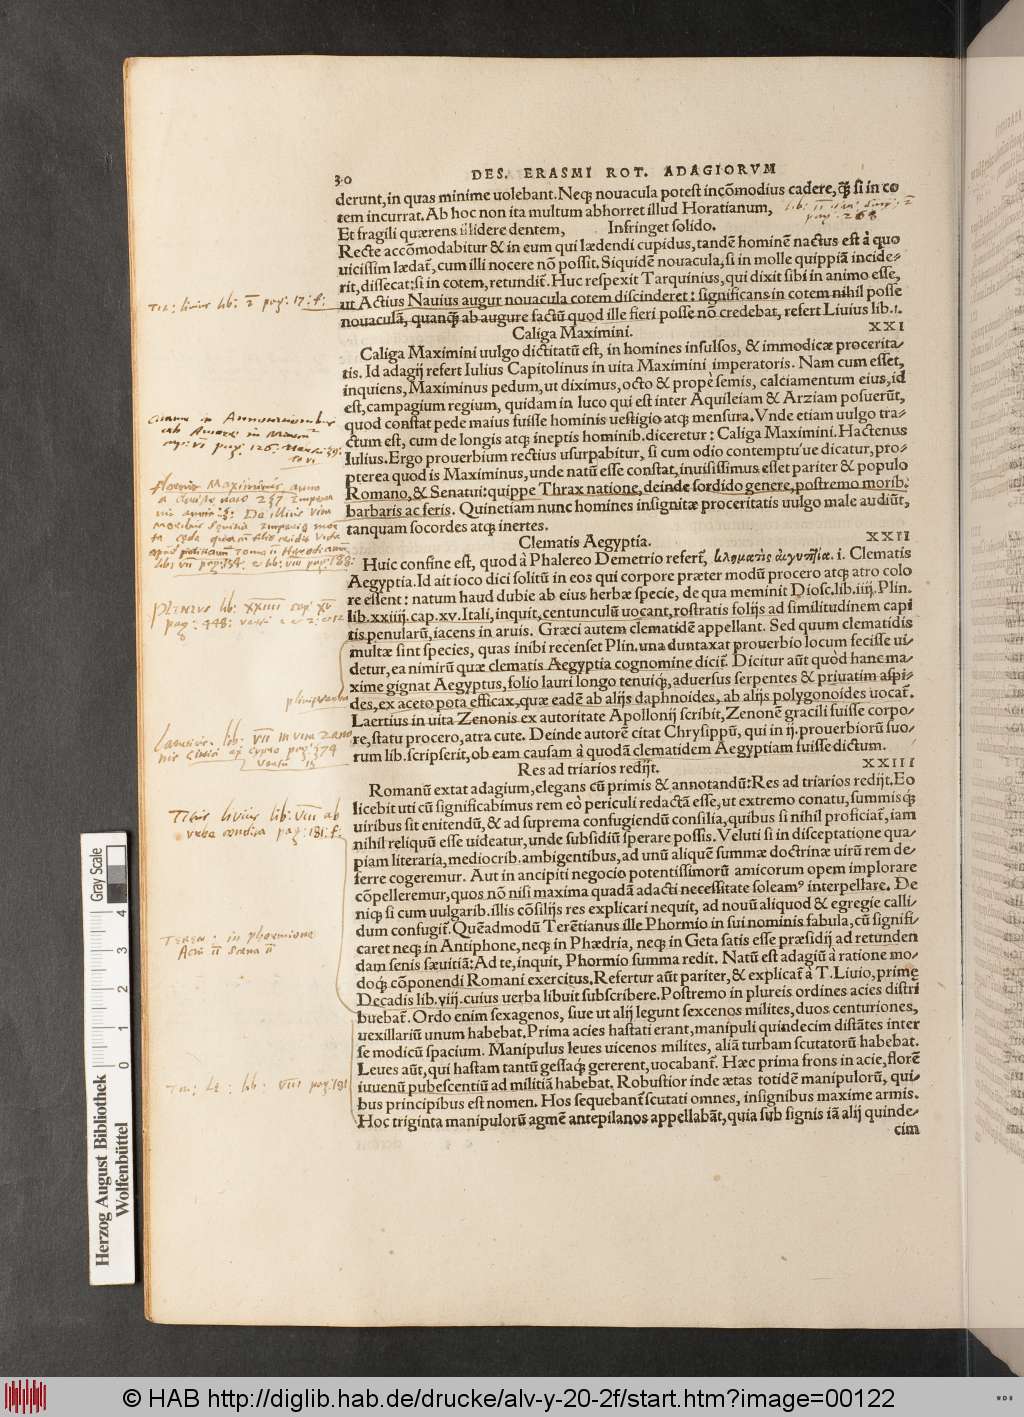 30
DES. ERASMI ROT. ADAGIORVM
derunt, in quas minime uolebant. Neqꝫ nouacula potest incõmodius cadere, ꝙ̃ si in co
tem incurrat. Ab hoc non ita multum abhorret illud Horatianum,
Et fragili quærens illidere dentem, Infringet solido.
Recte accõmodabitur & in eum qui lædendi cupidus, tandẽ hominẽ nactus est à quo
uicissim lædat̃, cum illi nocere nõ possit. Siquidẽ nouacula, si in molle quippiã incide-
rit, dissecat: si in cotem, retundit̃. Huc respexit Tarquinius, qui dixit sibi in animo esse,
ut Actius Nauius augur nouacula cotem discinderet: significans in cotem nihil posse
nouaculã, quanꝙ̃ ab augure factũ quod ille fieri posse nõ credebat, refert Liuius lib. 1.
Caliga Maximini. XXI
Caliga Maximini uulgo dictitatũ est, in homines insulsos, & immodicæ procerita-
tis. Id adagij refert Iulius Capitolinus in uita Maximini imperatoris. Nam cum esset,
inquiens, Maximinus pedum, ut diximus, octo & propè semis, calciamentum eius, id
est, campagium regium, quidam in luco qui est inter Aquileiam & Arziam posuerũt,
quod constat pede maius fuisse hominis uestigio atqꝫ mensura. Vnde etiam uulgo tra-
ctum est, cum de longis atqꝫ ineptis hominib. diceretur: Caliga Maximini. Hactenus
Iulius. Ergo prouerbium rectius usurpabitur, si cum odio contemptu'ue dicatur, pro-
pterea quod is Maximinus, unde natũ esse constat, inuisissimus esset pariter & populo
Romano, & Senatui: quippe Thrax natione, deinde sordido genere, postremo morib.
barbaris ac feris. Quinetiam nunc homines insignitæ proceritatis uulgo male audiũt,
tanquam socordes atqꝫ inertes.
Clematis Aegyptia. XXII
Huic confine est, quod à Phalereo Demetrio refert̃, κληματὶς αἰγυπτία. i. Clematis
Aegyptia. Id ait ioco dici solitũ in eos qui corpore præter modũ procero atqꝫ atro colo
re essent: natum haud dubie ab eius herbæ specie, de qua meminit Diosc. lib. iiij. Plin.
lib. xxiiij. cap. xv. Itali, inquit, centunculũ uocant, rostratis folijs ad similitudinem capi
tis penularũ, iacens in aruis. Græci autem clematidẽ appellant. Sed quum clematidis
multæ sint species, quas inibi recenset Plin. una duntaxat prouerbio locum fecisse ui-
detur, ea nimirũ quæ clematis Aegyptia cognomine dicit̃. Dicitur aũt quòd hanc ma-
xime gignat Aegyptus, folio lauri longo tenuiqꝫ, aduersus serpentes & priuatim aspi-
des, ex aceto pota efficax, quæ eadẽ ab alijs daphnoides, ab alijs polygonoides uocat̃.
Laertius in uita Zenonis ex autoritate Apollonij scribit, Zenonẽ gracili fuisse corpo-
re, statu procero, atra cute. Deinde autorẽ citat Chrysippũ, qui in ij. prouerbiorũ suo-
rum lib. scripserit, ob eam causam à quodã clematidem Aegyptiam fuisse dictum.
Res ad triarios redijt. XXIII
Romanũ extat adagium, elegans cũ primis & annotandũ: Res ad triarios redijt. Eo
licebit uti cũ significabimus rem eo periculi redactã esse, ut extremo conatu, summisqꝫ
uiribus sit enitendũ, & ad suprema confugiendũ consilia, quibus si nihil proficiat̃, iam
nihil reliquũ esse uideatur, unde subsidiũ sperare possis. Veluti si in disceptatione qua-
piam literaria, mediocrib. ambigentibus, ad unũ aliquẽ summæ doctrinæ uirũ rem de-
ferre cogeremur. Aut in ancipiti negocio potentissimorũ amicorum opem implorare
cõpelleremur, quos nõ nisi maxima quadã adacti necessitate soleamꝰ interpellare. De
niqꝫ si cum uulgarib. illis cõsilijs res explicari nequit, ad nouũ aliquod & egregie calli
dum confugit̃. Quẽadmodũ Terẽtianus ille Phormio in sui nominis fabula, cũ signifi-
caret neqꝫ in Antiphone, neqꝫ in Phædria, neqꝫ in Geta satis esse præsidij ad retunden
dam senis sæuitiã: Ad te, inquit, Phormio summa redit. Natũ est adagiũ à ratione mo-
doqꝫ cõponendi Romani exercitus. Refertur aũt pariter, & explicat̃ à T. Liuio, primæ
Decadis lib. viij. cuius uerba libuit subscribere. Postremo in plureis ordines acies distri
buebat̃. Ordo enim sexagenos, siue ut alij legunt sexcenos milites, duos centuriones,
uexillariũ unum habebat. Prima acies hastati erant, manipuli quindecim distãtes inter
se modicũ spacium. Manipulus leues uicenos milites, aliã turbam scutatorũ habebat.
Leues aũt, qui hastam tantũ gessaqꝫ gererent, uocabant̃. Hæc prima frons in acie, florẽ
iuuenũ pubescentiũ ad militiã habebat. Robustior inde ætas totidẽ manipulorũ, qui-
bus principibus est nomen. Hos sequebant̃ scutati omnes, insignibus maxime armis.
Hoc triginta manipulorũ agmẽ antepilanos appellabãt, quia sub signis iã alij quinde-
cim
Tit: livius lib: 2 pag: 17: f:
PLINIVS lib: XXIIII cap: XV
pag: 448:
Laertius: lib: VII in vita Zeno
nis pag: 374
Titus livius lib: VIII ab
vrbe condita pag: 181: f:
TEREN: in phormione
Actu II Scena II
Tit: Li: lib: VIII pag: 181
Gray Scale
0 1 2 3 4
Herzog August Bibliothek
Wolfenbüttel
© HAB http://diglib.hab.de/drucke/alv-y-20-2f/start.htm?image=00122